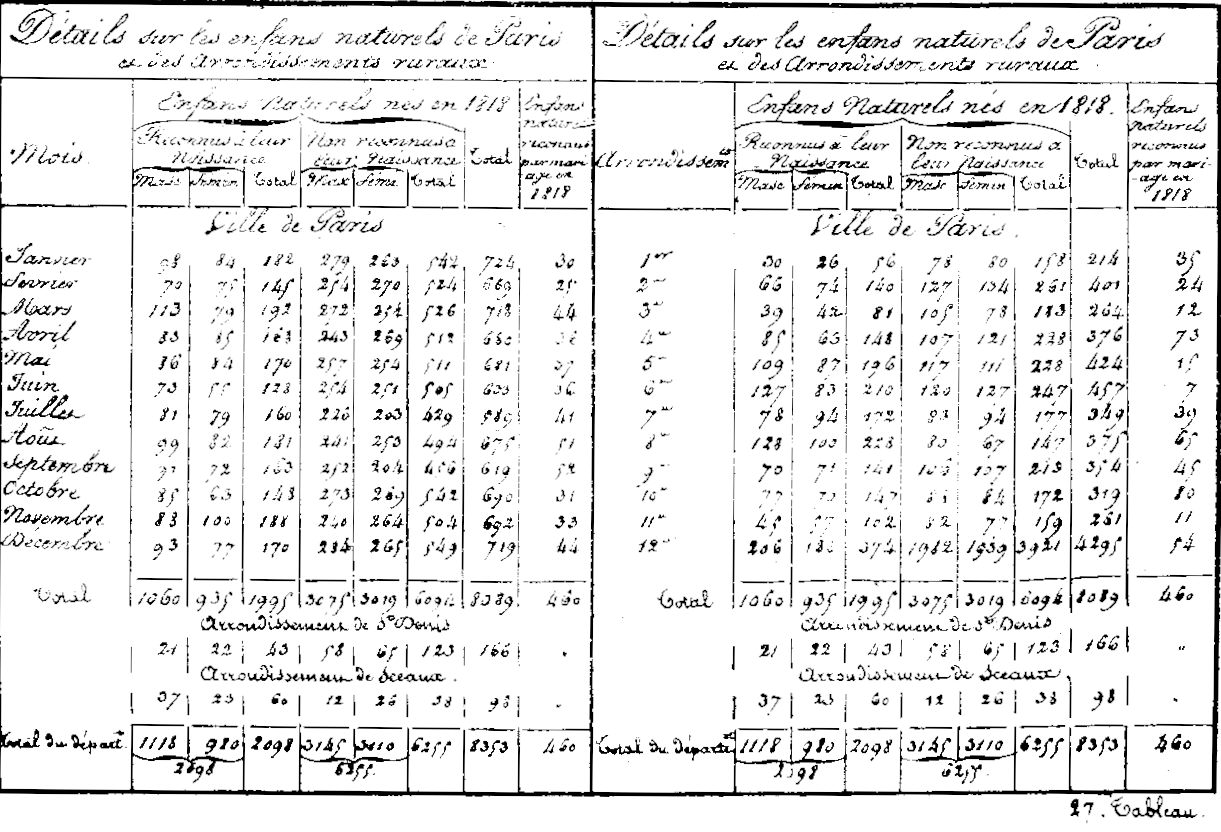 Détails sur les enfans naturels de Paris
et des Arrondissements ruraux
Mois
Enfans Naturels nés en 1818
Reconnus à leur Naissance
Non reconnus à leur Naissance
Total
Enfans naturels reconnus par mariage en 1818
Masc Fémin Total Masc Fémi Total
Ville de Paris
Janvier 98 84 182 279 263 542 724 30
Fevrier 70 75 145 254 270 524 669 25
Mars 113 79 192 272 254 526 718 44
Avril 83 85 168 243 269 512 680 36
Mai 86 84 170 257 254 511 681 37
Juin 73 55 128 254 251 505 633 36
Juillet 81 79 160 226 203 429 589 41
Août 99 82 181 241 253 494 675 51
Septembre 91 72 163 252 204 456 619 52
Octobre 85 63 148 273 269 542 690 31
Novembre 88 100 188 240 264 504 692 33
Décembre 93 77 170 284 265 549 719 44
Total 1060 935 1995 3075 3019 6094 8089 460
Arrondissement de St Denis
21 22 43 58 65 123 166 "
Arrondissement de Sceaux.
37 23 60 12 26 38 98 "
Total du départt 1118 980 2098 3145 3110 6255 8353 460
2098 6255
Détails sur les enfans naturels de Paris
et des Arrondissements ruraux
Arrondissemts
Enfans Naturels nés en 1818.
Reconnus à leur Naissance
Non reconnus à leur Naissance
Total
Enfans naturels reconnus par mariage en 1818
Masc Fémin Total Masc Fémin Total
Ville de Paris.
1er 30 26 56 78 80 158 214 35
2me 66 74 140 127 134 261 401 24
3me 39 42 81 105 78 183 264 12
4me 85 63 148 107 121 228 376 73
5me 109 87 196 117 111 228 424 15
6me 127 83 210 120 127 247 457 7
7me 78 94 172 83 94 177 349 39
8me 128 100 228 80 67 147 375 65
9me 70 71 141 106 107 213 354 45
10me 77 70 147 88 84 172 319 80
11me 45 57 102 82 77 159 261 11
12me 206 168 374 1982 1939 3921 4295 54
Total 1060 935 1995 3075 3019 6094 8089 460
Arrondissement de St Denis
21 22 43 58 65 123 166 "
Arrondissement de Sceaux.
37 23 60 12 26 38 98 "
Total du départt 1118 980 2098 3145 3110 6255 8353 460
2098 6255.
27. Tableau.